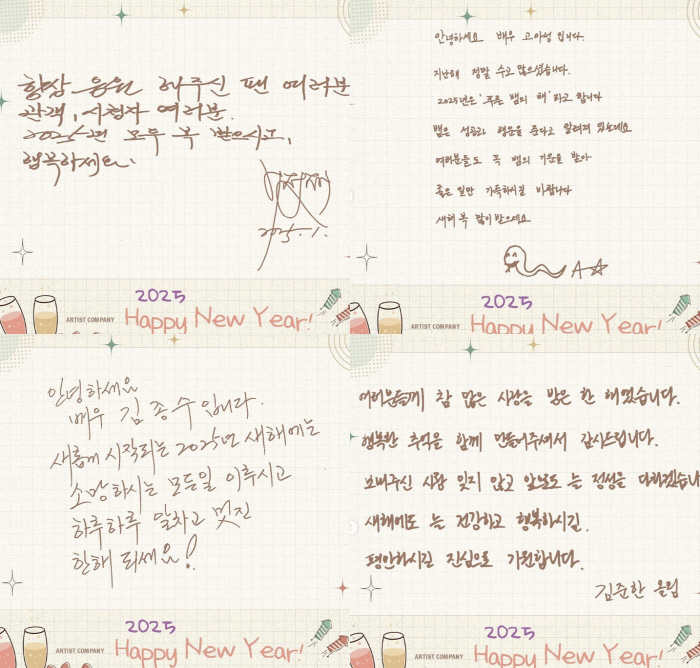 항상 응원 해주신 팬 여러분
관객, 시청자 여러분.
2025년 모두 복 받으시고,
행복하세요.
2025. 1.
2025
ARTIST COMPANY
Happy New Year!
안녕하세요 배우 고아성 입니다.
지난해 정말 수고 많으셨습니다.
2025년은 '푸른 뱀의 해' 라고 합니다
뱀은 성공과 행운을 준다고 알려져 있는데요
여러분들도 꼭 뱀의 기운을 받아
좋은 일만 가득하시길 바랍니다
새해 복 많이 받으세요
A☆
2025
ARTIST COMPANY
Happy New Year!
안녕하세요
배우 김종수 입니다.
새롭게 시작되는 2025년 새해에는
소망하시는 모든일 이루시고
하루하루 알차고 멋진
한해 되세요!
2025
ARTIST COMPANY
Happy New Year!
여러분들께 참 많은 사랑을 받은 한 해였습니다.
행복한 추억을 함께 만들어주셔서 감사드립니다.
보내주신 사랑 잊지 않고 앞날도 늘 정성을 다하겠습니
새해에도 늘 건강하고 행복하시길.
평안하시길 진심으로 기원합니다.
김준한 올림
2025
ARTIST COMPANY
Happy New Year!